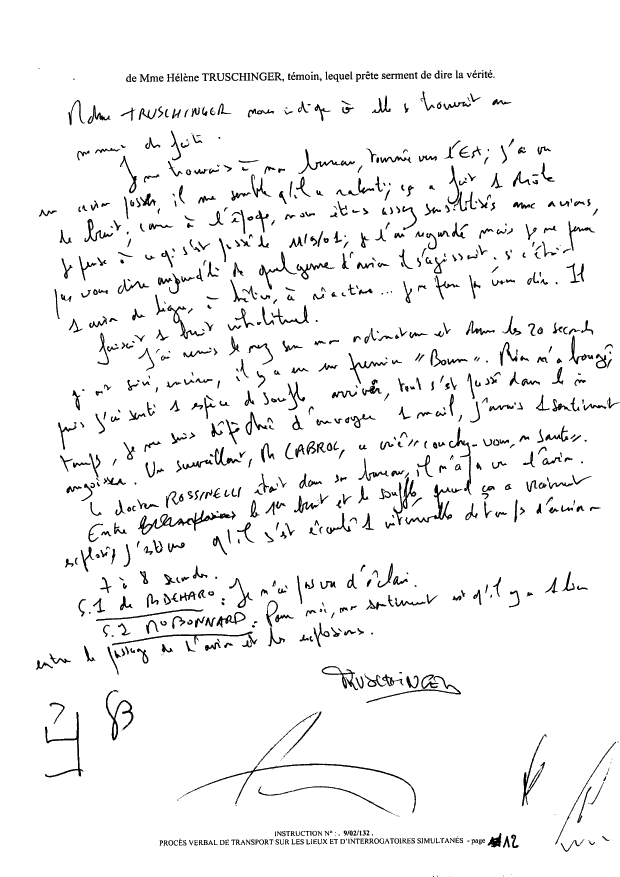 de Mme Hélène TRUSCHINGER, témoin, lequel prête serment de dire la vérité.
Mdme TRUSCHINGER nous indique où elle se trouvait au
moment des faits.
Je me trouvais à mon bureau, tournée vers l'Est; j'ai vu
un avion passer, il me semble qu'il a ralenti; ça a fait 1 drôle
de bruit; comme à l'époque, nous étions assez sensibilisés aux avions,
je pense à ce qui s'est passé le 11/9/01; je l'ai regardé mais je ne peux
pas vous dire aujourd'hui de quel genre d'avion il s'agissait. si c'était
1 avion de ligne, à hélice, à réaction... je ne peux pas vous dire. Il
faisait 1 bruit inhabituel.
J'ai remis le nez sur mon ordinateur et dans les 20 secondes
qui ont suivi, environ, il y a eu un premier "Boum". Rien n'a bougé,
puis j'ai senti 1 espèce de souffle arriver, tout s'est passé dans le même
temps, je me suis dépêchée d'envoyer 1 mail, j'avais 1 sentiment
angoissé. Un surveillant, M. CABROL, a crié "couchez-vous, on saute".
Le docteur ROSSINELLI était dans son bureau, il n'a pas vu l'avion.
Entre le 1er bruit et le souffle, quand ça a vraiment
explosé, j'estime qu'il s'est écoulé 1 intervalle de temps d'environ
7 à 8 secondes.
S.1 de M DEHARO: Je n'ai pas vu d'éclair.
S.2 Me BONNARD: Pour moi, mon sentiment est qu'il y a 1 lien
entre le passage de l'avion et les explosions.
TRUSCHINGER
INSTRUCTION N° : . 9/02/132 .
PROCÈS VERBAL DE TRANSPORT SUR LES LIEUX ET D'INTERROGATOIRES SIMULTANÉS - page 12